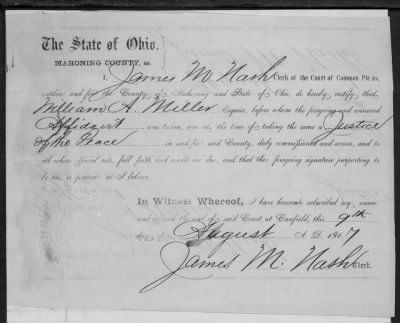 The State of Ohio,
MAHONING COUNTY, ss.
I, James M. Nash Clerk of the Court of Common Pleas,
within and for the County of Mahoning and State of Ohio, do hereby certify, that
William A. Miller Esquire, before whom the foregoing and annexed
Affidavit was taken, was at the time of taking the same a Justice
of the Peace in and for said County, duly commissioned and sworn, and to
all whose official acts, full faith and credit are due, and that the foregoing signature purporting to
be his, is genuine as I believe.
In Witness Whereof, I have hereunto subscribed my name
and affixed the seal of said Court at Canfield, this 9th
day of August A. D. 1867
James M. Nash Clerk.